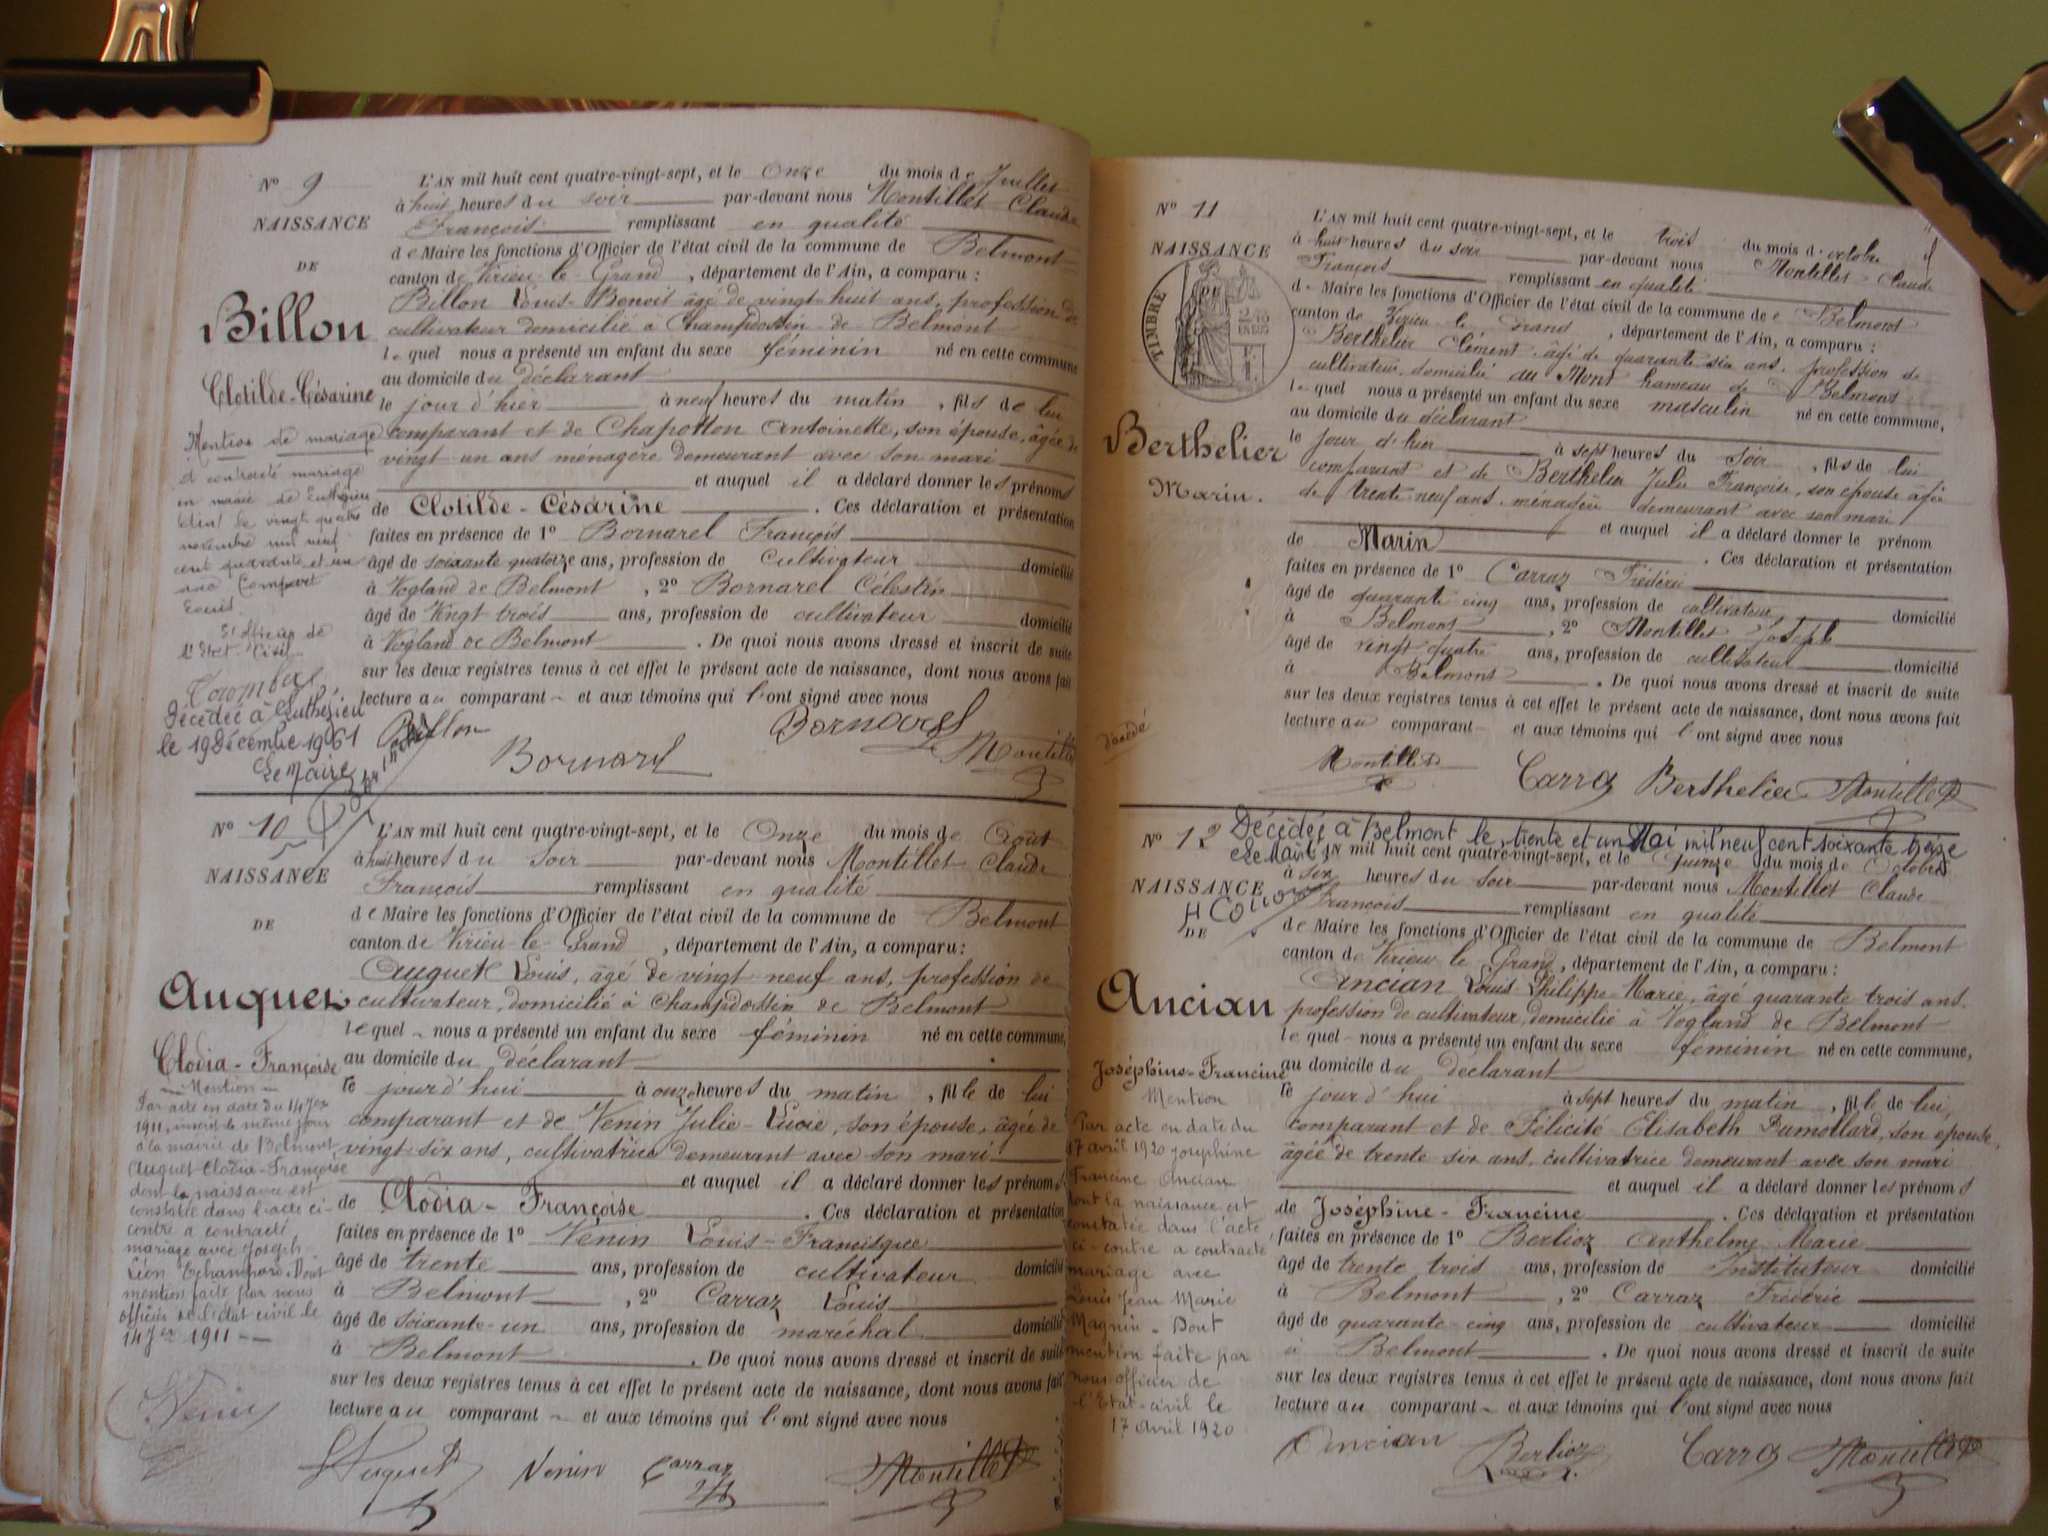 N° 9
NAISSANCE
DE
Billon
Clotilde-Césarine
Mention de mariage
a contracté mariage
en mairie de
le vingt quatre
novembre mil neuf
cent quarante et un
avec
Louis.
Décédée à Luthézieu
le 19 Décembre 1961
Le Maire
L'AN mil huit cent quatre-vingt-sept, et le Onze du mois de Juillet
à huit heures du soir par-devant nous Montillet Claude
François remplissant en qualité
de Maire les fonctions d'Officier de l'état civil de la commune de Belmont
canton de Virieu-le-Grand, département de l'Ain, a comparu :
Billon Louis-Benoit âgé de vingt-huit ans, profession de
cultivateur domicilié à Champdossin de Belmont
lequel nous a présenté un enfant du sexe féminin né en cette commune
au domicile du déclarant
le jour d'hier à neuf heures du matin, fils de lui
comparant et de Chapotton Antoinette, son épouse, âgée de
vingt un ans ménagère demeurant avec son mari
et auquel il a déclaré donner les prénoms
de Clotilde-Césarine. Ces déclaration et présentation
faites en présence de 1° Bornarel François
âgé de soixante quatorze ans, profession de cultivateur domicilié
à Vogland de Belmont, 2° Bornarel Célestin
âgé de Vingt trois ans, profession de cultivateur domicilié
à Vogland de Belmont. De quoi nous avons dressé et inscrit de suite
sur les deux registres tenus à cet effet le présent acte de naissance, dont nous avons fait
lecture au comparant et aux témoins qui l'ont signé avec nous
Billon Bornarel Bornarel Montillet
N° 10
NAISSANCE
DE
Auguet
Clodia-Françoise
Mention
Par acte en date du 14 Jer
1911, inscrit le même jour
à la mairie de Belmont,
Auguet Clodia-Françoise
dont la naissance est
constatée dans l'acte ci-
contre a contracté
mariage avec Joseph
Léon Echampard. Dont
mention faite par nous
officier de l'état civil le
14 Jer 1911
Venin
L'AN mil huit cent quatre-vingt-sept, et le Onze du mois de Août
à huit heures du soir par-devant nous Montillet Claude
François remplissant en qualité
de Maire les fonctions d'Officier de l'état civil de la commune de Belmont
canton de Virieu-le-Grand, département de l'Ain, a comparu :
Auguet Louis, âgé de vingt neuf ans, profession de
cultivateur, domicilié à Champdossin de Belmont
lequel nous a présenté un enfant du sexe féminin né en cette commune,
au domicile du déclarant
le jour d'hui à onze heures du matin, fille de lui
comparant et de Venin Julie-Lucie, son épouse, âgée de
vingt six ans, cultivatrice demeurant avec son mari
et auquel il a déclaré donner les prénoms
de Clodia-Françoise. Ces déclaration et présentation
faites en présence de 1° Venin Louis-Francisque
âgé de trente ans, profession de cultivateur domicilié
à Belmont, 2° Carraz Louis
âgé de soixante-un ans, profession de maréchal domicilié
à Belmont. De quoi nous avons dressé et inscrit de suite
sur les deux registres tenus à cet effet le présent acte de naissance, dont nous avons fait
lecture au comparant et aux témoins qui l'ont signé avec nous
Auguet Venin Carraz Montillet
N° 11
NAISSANCE
TIMBRE
Berthelier
Marin.
décédé
L'AN mil huit cent quatre-vingt-sept, et le trois du mois d'octobre
à huit heures du soir par-devant nous Montillet Claude
François remplissant en qualité
de Maire les fonctions d'Officier de l'état civil de la commune de Belmont
canton de Virieu le Grand, département de l'Ain, a comparu :
Berthelier Clément, âgé de quarante six ans, profession de
cultivateur, domicilié au Mont hameau de Belmont
lequel nous a présenté un enfant du sexe masculin né en cette commune,
au domicile du déclarant
le jour d'hier à sept heures du soir, fils de lui
comparant et de Berthelier Julie Françoise, son épouse âgée
de trente neuf ans, ménagère demeurant avec son mari
et auquel il a déclaré donner le prénom
de Marin. Ces déclaration et présentation
faites en présence de 1° Carraz Frédéric
âgé de quarante cinq ans, profession de cultivateur domicilié
à Belmont, 2° Montillet Joseph
âgé de vingt quatre ans, profession de cultivateur domicilié
à Belmont. De quoi nous avons dressé et inscrit de suite
sur les deux registres tenus à cet effet le présent acte de naissance, dont nous avons fait
lecture au comparant et aux témoins qui l'ont signé avec nous
Montillet Carraz Berthelier Montillet
N° 12
Décédée à Belmont le trente et un Mai mil neuf cent soixante treize
Le Maire
NAISSANCE
DE
Ancian
Joséphine-Francine
Mention
Par acte en date du
17 avril 1920 Joséphine
Francine Ancian
dont la naissance est
constatée dans l'acte
ci-contre a contracté
mariage avec
Louis Jean Marie
Magnin. Dont
mention faite par
nous officier de
l'Etat-civil le
17 Avril 1920
L'AN mil huit cent quatre-vingt-sept, et le Quinze du mois de Octobre
à six heures du soir par-devant nous Montillet Claude
François remplissant en qualité
de Maire les fonctions d'Officier de l'état civil de la commune de Belmont
canton de Virieu le Grand, département de l'Ain, a comparu :
Ancian Louis Philippe-Marie, âgé quarante trois ans.
profession de cultivateur, domicilié à Vogland de Belmont
lequel nous a présenté un enfant du sexe féminin né en cette commune,
au domicile du déclarant
le jour d'hui à sept heures du matin, fille de lui,
comparant et de Félicité Elisabeth Dumollard, son épouse,
âgée de trente six ans, cultivatrice demeurant avec son mari
et auquel il a déclaré donner les prénoms
de Joséphine-Francine. Ces déclaration et présentation
faites en présence de 1° Berlioz Anthelme Marie
âgé de trente trois ans, profession de Instituteur domicilié
à Belmont, 2° Carraz Frédéric
âgé de quarante-cinq ans, profession de cultivateur domicilié
à Belmont. De quoi nous avons dressé et inscrit de suite
sur les deux registres tenus à cet effet le présent acte de naissance, dont nous avons fait
lecture au comparant et aux témoins qui l'ont signé avec nous
Ancian Berlioz Carraz Montillet